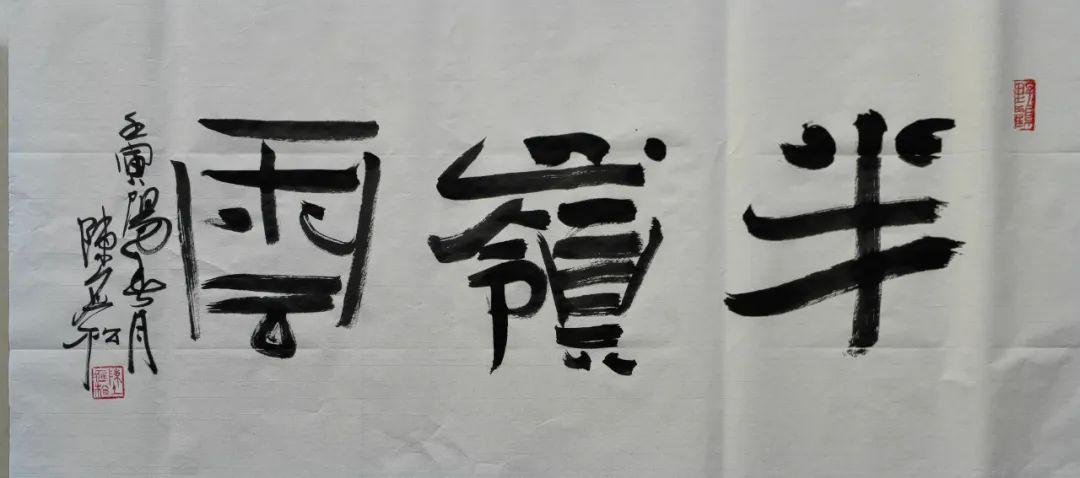 半嶺雲
壬寅陽春月
陳立松